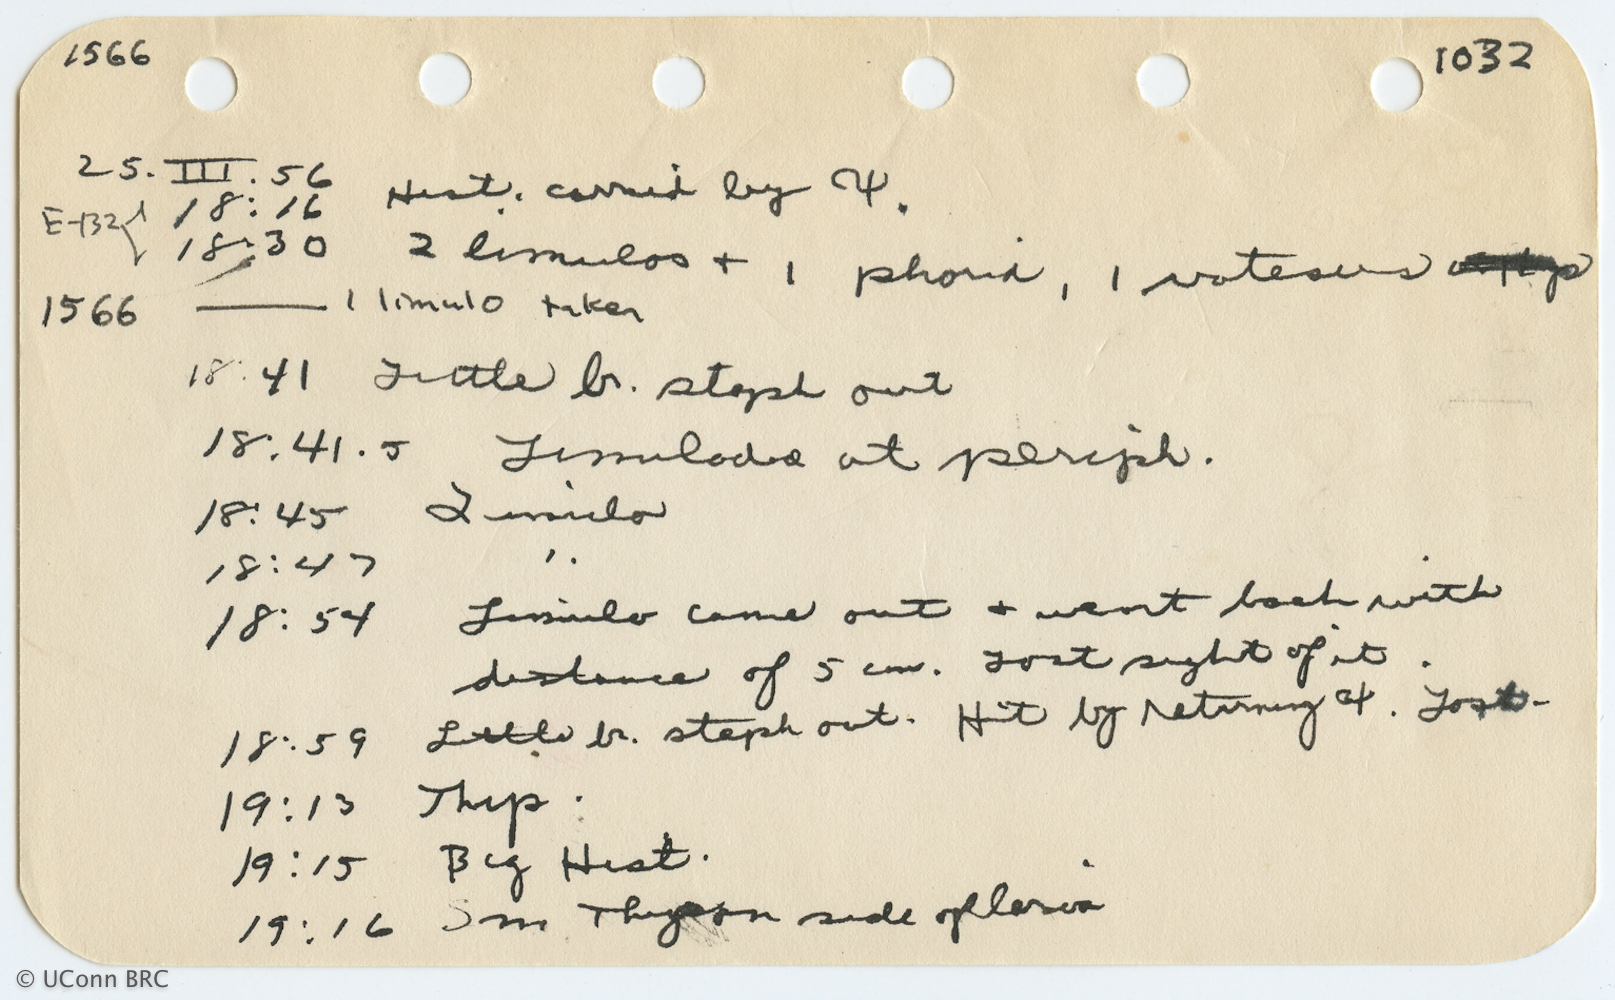 1566 1032
25. III. 56
18:16 Hist. carried by ♀.
E-132
18:30 2 limulos + 1 phorid, 1 vatesus
1566 —— 1 limulo taken
18:41 Little br. staph out
18:41.5 Limulodid at periph.
18:45 Limulo
18:47 "
18:54 Limulo came out + went back with
distance of 5 cm. Lost sight of it.
18:59 Little br. staph out. Hit by returning ♀. Lost.
19:13 Thyp.
19:15 Big Hist.
19:16 Sm Thyp on side of larva
© UConn BRC